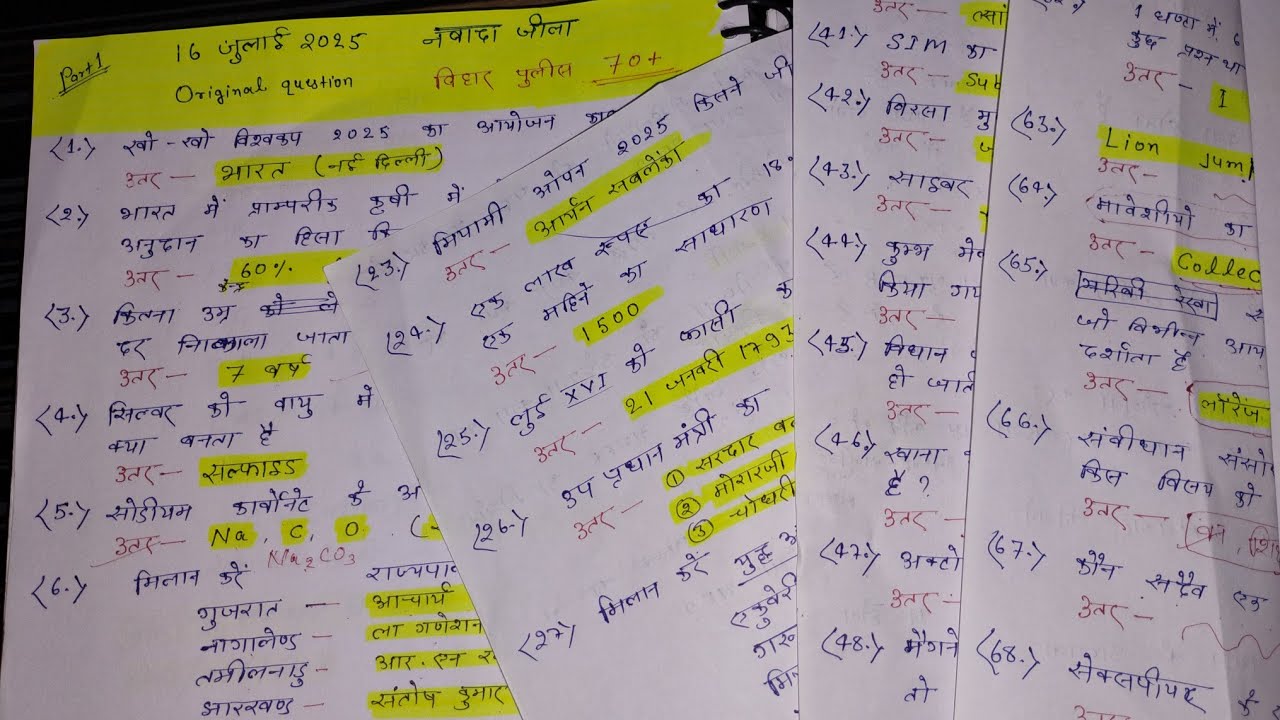 Part 1
16 जुलाई 2025 नवादा जीला
Original question बिहार पुलीस 70+
(1.) खो-खो विश्वकप 2025 का आयोजन
उतर — भारत (नई दिल्ली)
(2.) भारत में प्राम्परीक कृषी में
अनुदान का हिसा
उतर — 60%
केन्द्र
(3.) कितना उम्र को ले
दर निकाला जाता
उतर — 7 वर्ष
(4.) सिल्वर को वायु में
क्या बनता है
उतर — सल्फाइड
(5.) सोडीयम कार्वोनेट के अ
उतर — Na, C, O
Na2CO3
(6.) मिलान करें राज्यपाल
गुजरात — आचार्य
नागालैण्ड — ला गणेशन
तमीलनाडु — आर. एन र
झारखण्ड — संतोष कुमार
(23.) मियामी ओपन 2025 किसने जी
उतर — आर्यन सबलेंका
(24.) एक लाख रूपए का 18%
एक महिने का साधारण
उतर — 1500
(25.) लुई XVI को फासी क
उतर — 21 जनवरी 1793
(26.) उप प्रधान मंत्री का
उतर — ① सरदार
② मोरारजी
③ चोधरी
(27) मिलान करें युद्ध
उतर —
(41.) SIM का
उतर — Sub
(42.) बिरसा मु
उतर —
(43.) साइबर
उतर —
(44.) कुम्भ मे
किया गया
उतर —
(45.) विधान
हो जाती
उतर —
(46.) खाना
है ?
उतर —
(47.) अक्टो
उतर —
(48.) मैगने
तो
1 घण्टा में 6
कुछ प्रश्न था
उतर — I
(63.) Lion Jum
उतर —
(64.) मावेशीयो का
उतर — Collec
(65.) जो विभीन आय
दर्शाता है
उतर — लॉरेंज
(66.) संवीधान संसो
किस विसय को
उतर — वन, शि
(67.) कौन सदैव एक
उतर —
(68.) सेक्सपीयर के
उतर